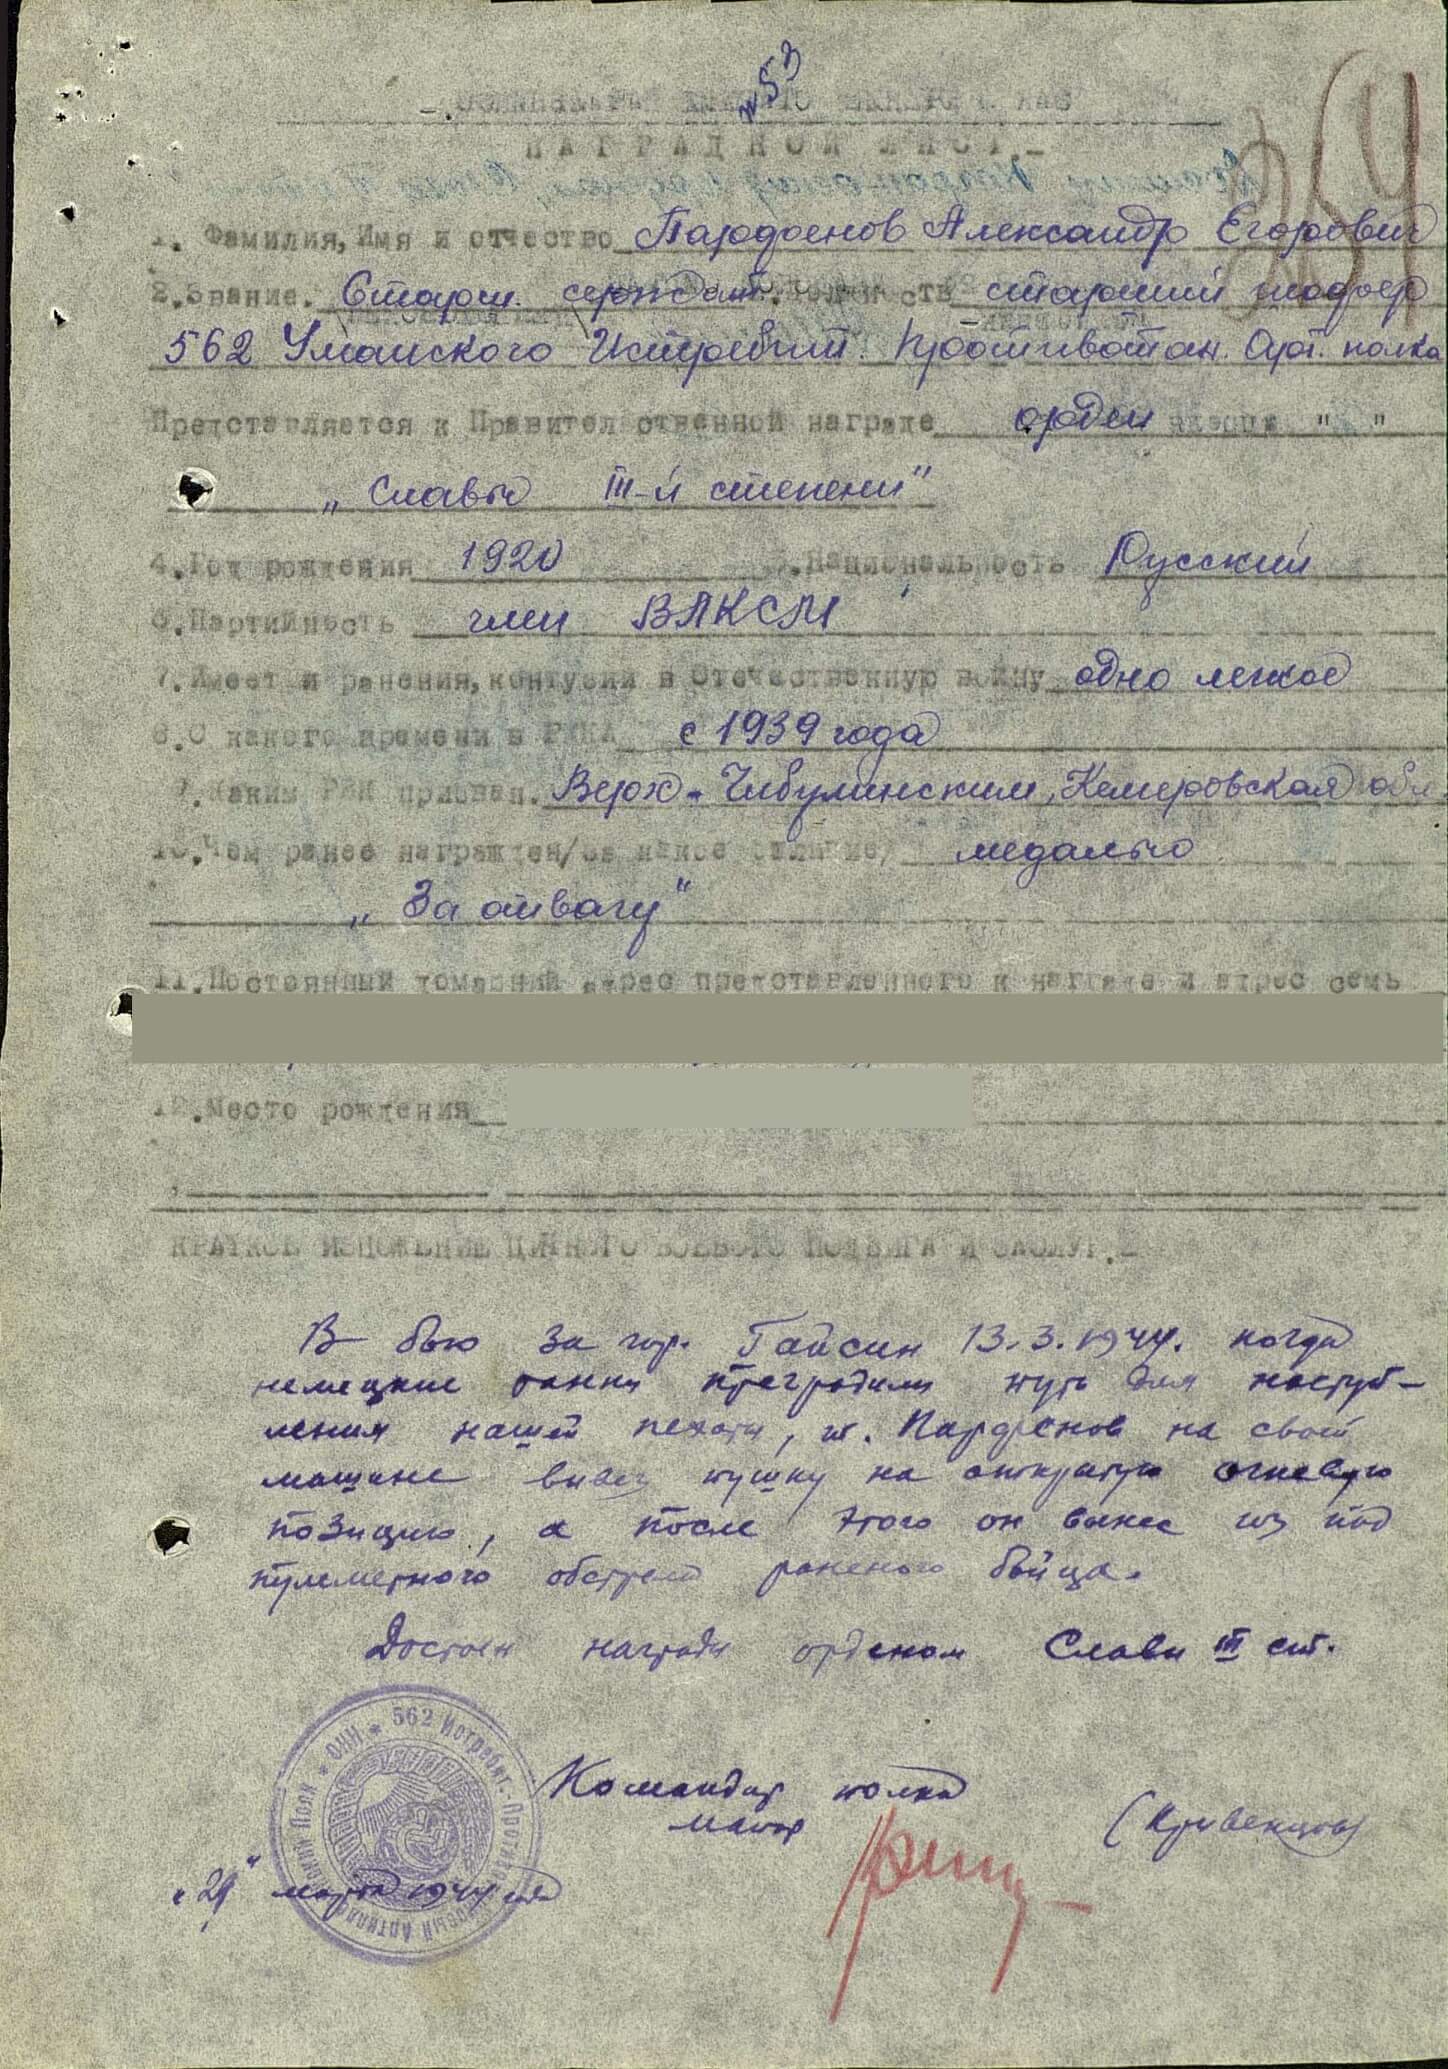 №53
264
НАГРАДНОЙ ЛИСТ.-
1. Фамилия, Имя и отчество Парфенов Александр Егорович
2. Звание. Старш. сержант. должность старший шофер
562 Уманского Истребит. Противотан. Арт. полка
Представляется к Правительственной награде орден
„Славы III-й степени"
4. Год рождения 1920 5. Национальность Русский
6. Партийность член ВЛКСМ
7. Имеет ли ранения, контузии в Отечественную войну одно легкое
8. С какого времени в РККА с 1939 года
9. Каким РВК призван. Верх-Чебулинским, Кемеровская обл
10. Чем ранее награжден/за какое отличие/ медалью
„За отвагу"
11. Постоянный домашний адрес представленного к награде и адрес семь
12. Место рождения
КРАТКОЕ ИЗЛОЖЕНИЕ ЛИЧНОГО БОЕВОГО ПОДВИГА И ЗАСЛУГ.-
В бою за гор. Гайсин 13.3.1944. когда
немецкие танки преградили путь для наступ-
ления нашей пехоты, т. Парфенов на своей
машине вывез пушку на открытую огневую
позицию, а после этого он вынес из под
пулеметного обстрела раненого бойца.
Достоин награды орденом Славы III ст.
Командир полка
майор (Кривенцов)
„29" марта 1944 года
562 Истребит.-Противотанковый Артиллерийский Полк * ОНН *